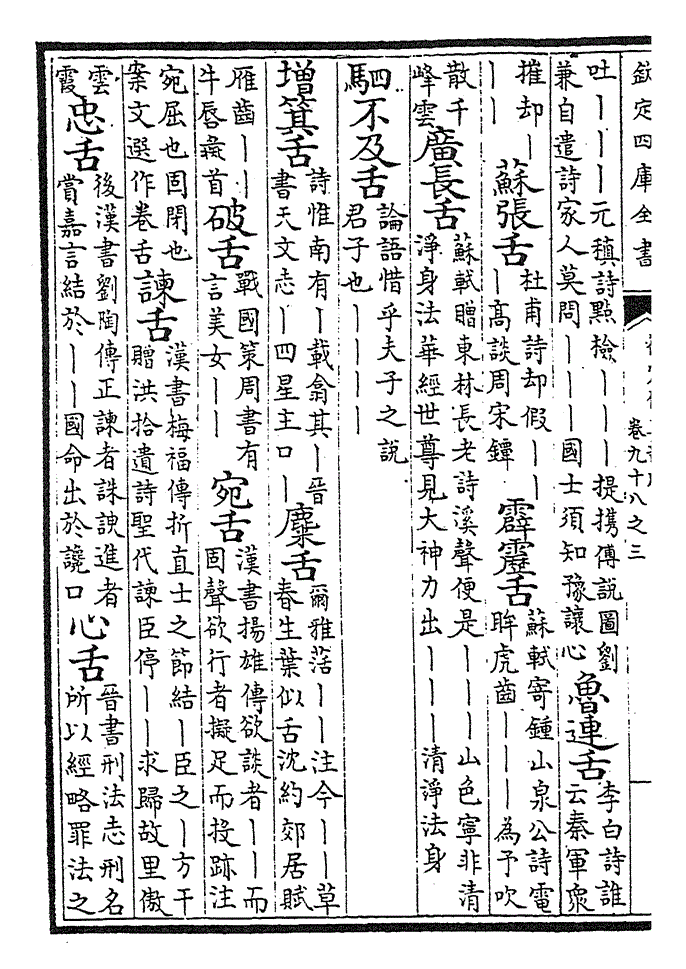 欽定四庫全書
卷九十八之三
吐｜｜｜元稹詩點檢｜｜｜提攜傅說圖劉
兼自遣詩家人莫問｜｜｜國士須知豫讓心
魯連舌
李白詩誰
云秦軍衆
摧却｜
｜｜
蘇張舌
杜甫詩却假｜｜
｜高談周宋鐔
霹靂舌
蘇軾寄鍾山泉公詩電
眸虎齒｜｜｜為予吹
散千
峰雲
廣長舌
蘇軾贈東林長老詩溪聲便是｜｜｜山色寧非清
淨身法華經世尊見大神力出｜｜｜清淨法身
駟不及舌
論語惜乎夫子之說
君子也｜｜｜｜
增箕舌
詩惟南有｜載翕其｜晉
書天文志｜四星主口｜
麋舌
爾雅萿｜｜注今｜｜草
春生葉似舌沈約郊居賦
雁齒｜｜
牛唇彘首
破舌
戰國策周書有
言美女｜｜
宛舌
漢書揚雄傳欲談者｜｜而
固聲欲行者擬足而投跡注
宛屈也固閉也
案文選作卷舌
諫舌
漢書梅福傳折直士之節結｜臣之｜方干
贈洪拾遺詩聖代諫臣停｜｜求歸故里傲
雲
霞
忠舌
後漢書劉陶傳正諫者誅諛進者
賞嘉言結於｜｜國命出於讒口
心舌
晉書刑法志刑名
所以經略罪法之